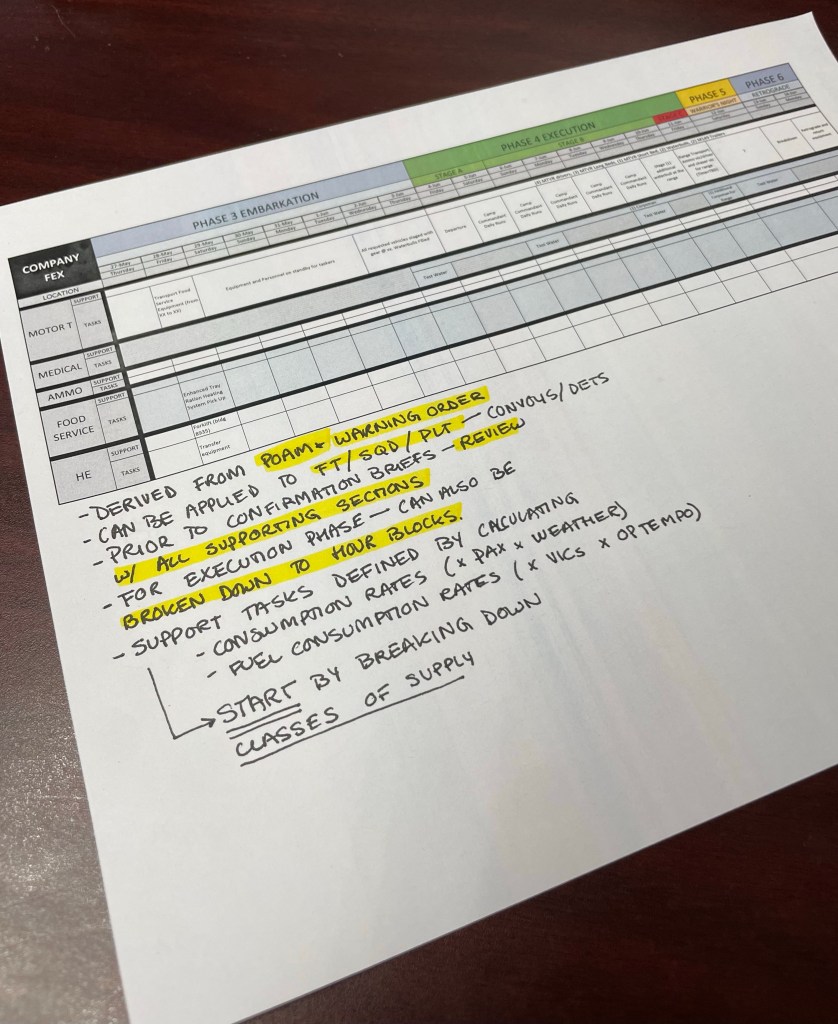 PHASE 6
PHASE 5
RETROGRADE
WARRIOR'S NIGHT
PHASE 4 EXECUTION
STAGE A
STAGE B
PHASE 3 EMBARKATION
27-May
28-May
29-May
30-May
31-May
Thursday
Friday
Saturday
Sunday
Monday
COMPANY
FEX
LOCATION
MOTOR T
SUPPORT
TASKS
Transport Food
Service
Equipment (from
XX to XX)
Equipment and Personnel on standby for taskers
All requested vehicles staged with
Departure
Camp
Commandant
Daily Runs
Camp
Commandant
Daily Runs
Camp
Commandant
Daily Runs
Camp
Commandant
Daily Runs
Camp
Commandant
Daily Runs
Test Water
Test Water
Test Water
Test Water
MEDICAL
SUPPORT
TASKS
AMMO
SUPPORT
TASKS
FOOD
SERVICE
SUPPORT
TASKS
Enhanced Tray
Ration Heating
System Pick Up
HE
SUPPORT
TASKS
Transfer
equipment
- DERIVED FROM POAM & WARNING ORDER
- CAN BE APPLIED TO FT/SQD/PLT - CONVOYS/DETS
- PRIOR TO CONFIRMATION BRIEFS - REVIEW
W/ ALL SUPPORTING SECTIONS
- FOR EXECUTION PHASE - CAN ALSO BE
BROKEN DOWN TO HOUR BLOCKS.
- SUPPORT TASKS DEFINED BY CALCULATING
- CONSUMPTION RATES (x PAX x WEATHER)
- FUEL CONSUMPTION RATES (x VICS x OPTEMPO)
→ START BY BREAKING DOWN
CLASSES OF SUPPLY